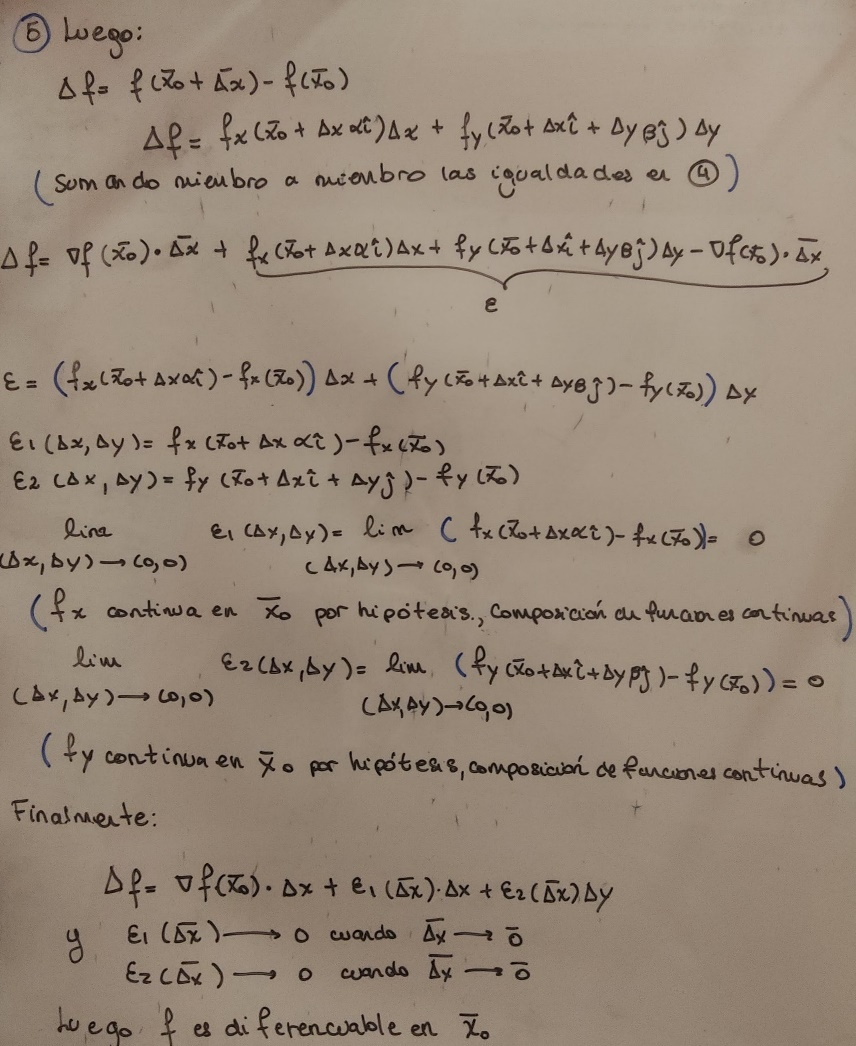 ⑤ Luego:
Δf = f(x̄₀ + Δ̄x) - f(x̄₀)
Δf = fx(x̄₀ + Δx α î)Δx + fy(x̄₀ + Δx î + Δy β ĵ) Δy
(Sumando miembro a miembro las igualdades en ④)
Δf = ∇f(x̄₀)·Δ̄x + fx(x̄₀ + Δx α î)Δx + fy(x̄₀ + Δx î + Δy β ĵ)Δy - ∇f(x̄₀)·Δ̄x
ε
ε = (fx(x̄₀ + Δx α î) - fx(x̄₀)) Δx + (fy(x̄₀ + Δx î + Δy β ĵ) - fy(x̄₀)) Δy
ε1(Δx, Δy) = fx(x̄₀ + Δx α î) - fx(x̄₀)
ε2(Δx, Δy) = fy(x̄₀ + Δx î + Δy ĵ) - fy(x̄₀)
lim ε1(Δx, Δy) = lim (fx(x̄₀ + Δx α î) - fx(x̄₀)) = 0
(Δx, Δy) → (0,0) (Δx, Δy) → (0,0)
(fx continua en x̄₀ por hipótesis., composición de funciones continuas)
lim ε2(Δx, Δy) = lim (fy(x̄₀ + Δx î + Δy β ĵ) - fy(x̄₀)) = 0
(Δx, Δy) → (0,0) (Δx, Δy) → (0,0)
(fy continua en x̄₀ por hipótesis, composición de funciones continuas)
Finalmente:
Δf = ∇f(x̄₀)· Δx + ε1(Δ̄x)·Δx + ε2(Δ̄x)Δy
y ε1(Δ̄x) → 0 cuando Δ̄x → 0̄
ε2(Δ̄x) → 0 cuando Δ̄x → 0̄
Luego f es diferenciable en x̄₀